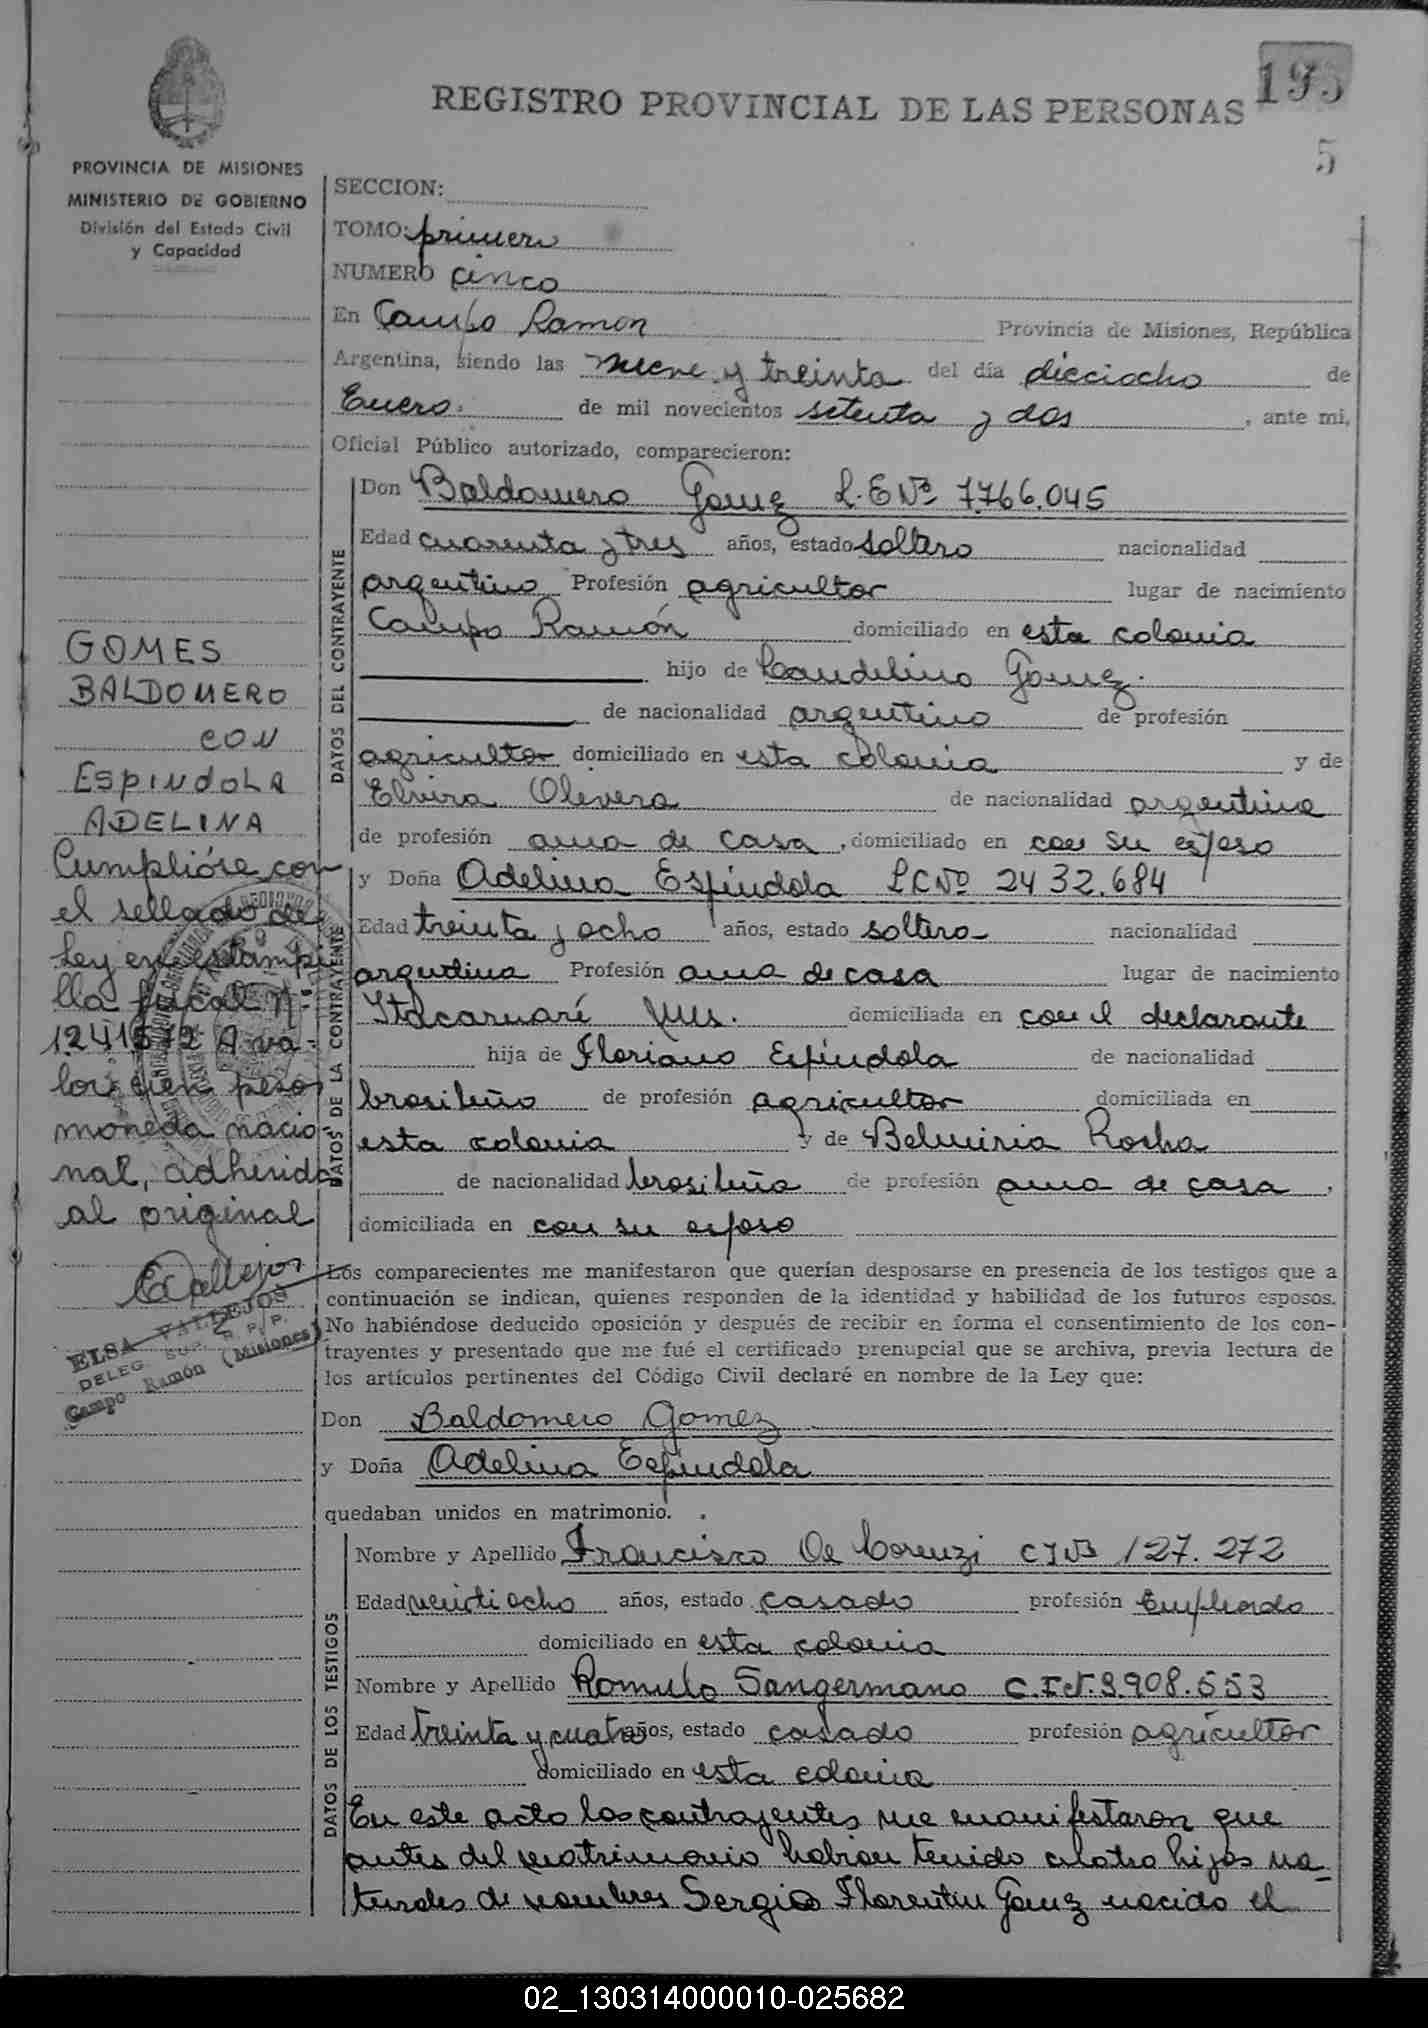 195
REGISTRO PROVINCIAL DE LAS PERSONAS
5
PROVINCIA DE MISIONES
MINISTERIO DE GOBIERNO
División del Estado Civil
y Capacidad
SECCION:
TOMO: primero
NUMERO cinco
En Campo Ramon Provincia de Misiones, República
Argentina, siendo las nueve y treinta del día dieciocho de
Enero. de mil novecientos setenta y dos, ante mi,
Oficial Público autorizado, comparecieron:
DATOS DEL CONTRAYENTE
Don Baldomero Gomez L.E Nº 7.766.045
Edad cuarenta y tres años, estado soltero nacionalidad
argentino Profesión agricultor lugar de nacimiento
Campo Ramón domiciliado en esta colonia
hijo de Candelino Gomez.
de nacionalidad argentino de profesión
agricultor domiciliado en esta colonia y de
Elvira Olivera de nacionalidad argentina
de profesión ama de casa, domiciliado en con su esposo
DATOS DE LA CONTRAYENTE
y Doña Adelina Espindola L.C Nº 2432.684
Edad treinta y ocho años, estado soltera nacionalidad
argentina Profesión ama de casa lugar de nacimiento
Itacaruaré Mns. domiciliada en con el declarante
hija de Floriano Espíndola de nacionalidad
brasileño de profesión agricultor domiciliada en
esta colonia y de Belmiria Rocha
de nacionalidad brasileña de profesión ama de casa,
domiciliada en con su esposo
GOMES
BALDOMERO
CON
ESPINDOLA
ADELINA
Cumplióse con
el sellado de
Ley en estampi
lla fiscal Nº
1241572 A va-
lor cien pesos
moneda nacio
nal, adherida
al original
EVallejos
ELSA VALLEJOS
DELEG. SUP. R. P. P.
Campo Ramón (Misiones)
Los comparecientes me manifestaron que querían desposarse en presencia de los testigos que a
continuación se indican, quienes responden de la identidad y habilidad de los futuros esposos.
No habiéndose deducido oposición y después de recibir en forma el consentimiento de los con-
trayentes y presentado que me fué el certificado prenupcial que se archiva, previa lectura de
los artículos pertinentes del Código Civil declaré en nombre de la Ley que:
Don Baldomero Gomez
y Doña Adelina Espindola
quedaban unidos en matrimonio.
DATOS DE LOS TESTIGOS
Nombre y Apellido Francisco De Lorenzi C I Nº 127.272
Edad veintiocho años, estado casado profesión Empleado
domiciliado en esta colonia
Nombre y Apellido Romulo Sangermano C.I.Nº 3.908.553
Edad treinta y cuatro años, estado casado profesión agrícultor
domiciliado en esta colonia
En este acto los contrayentes me manifestaron que
antes del matrimonio habian tenido cuatro hijos na-
turales de nombres Sergio Florentin Gomez nacido el
02_130314000010-025682